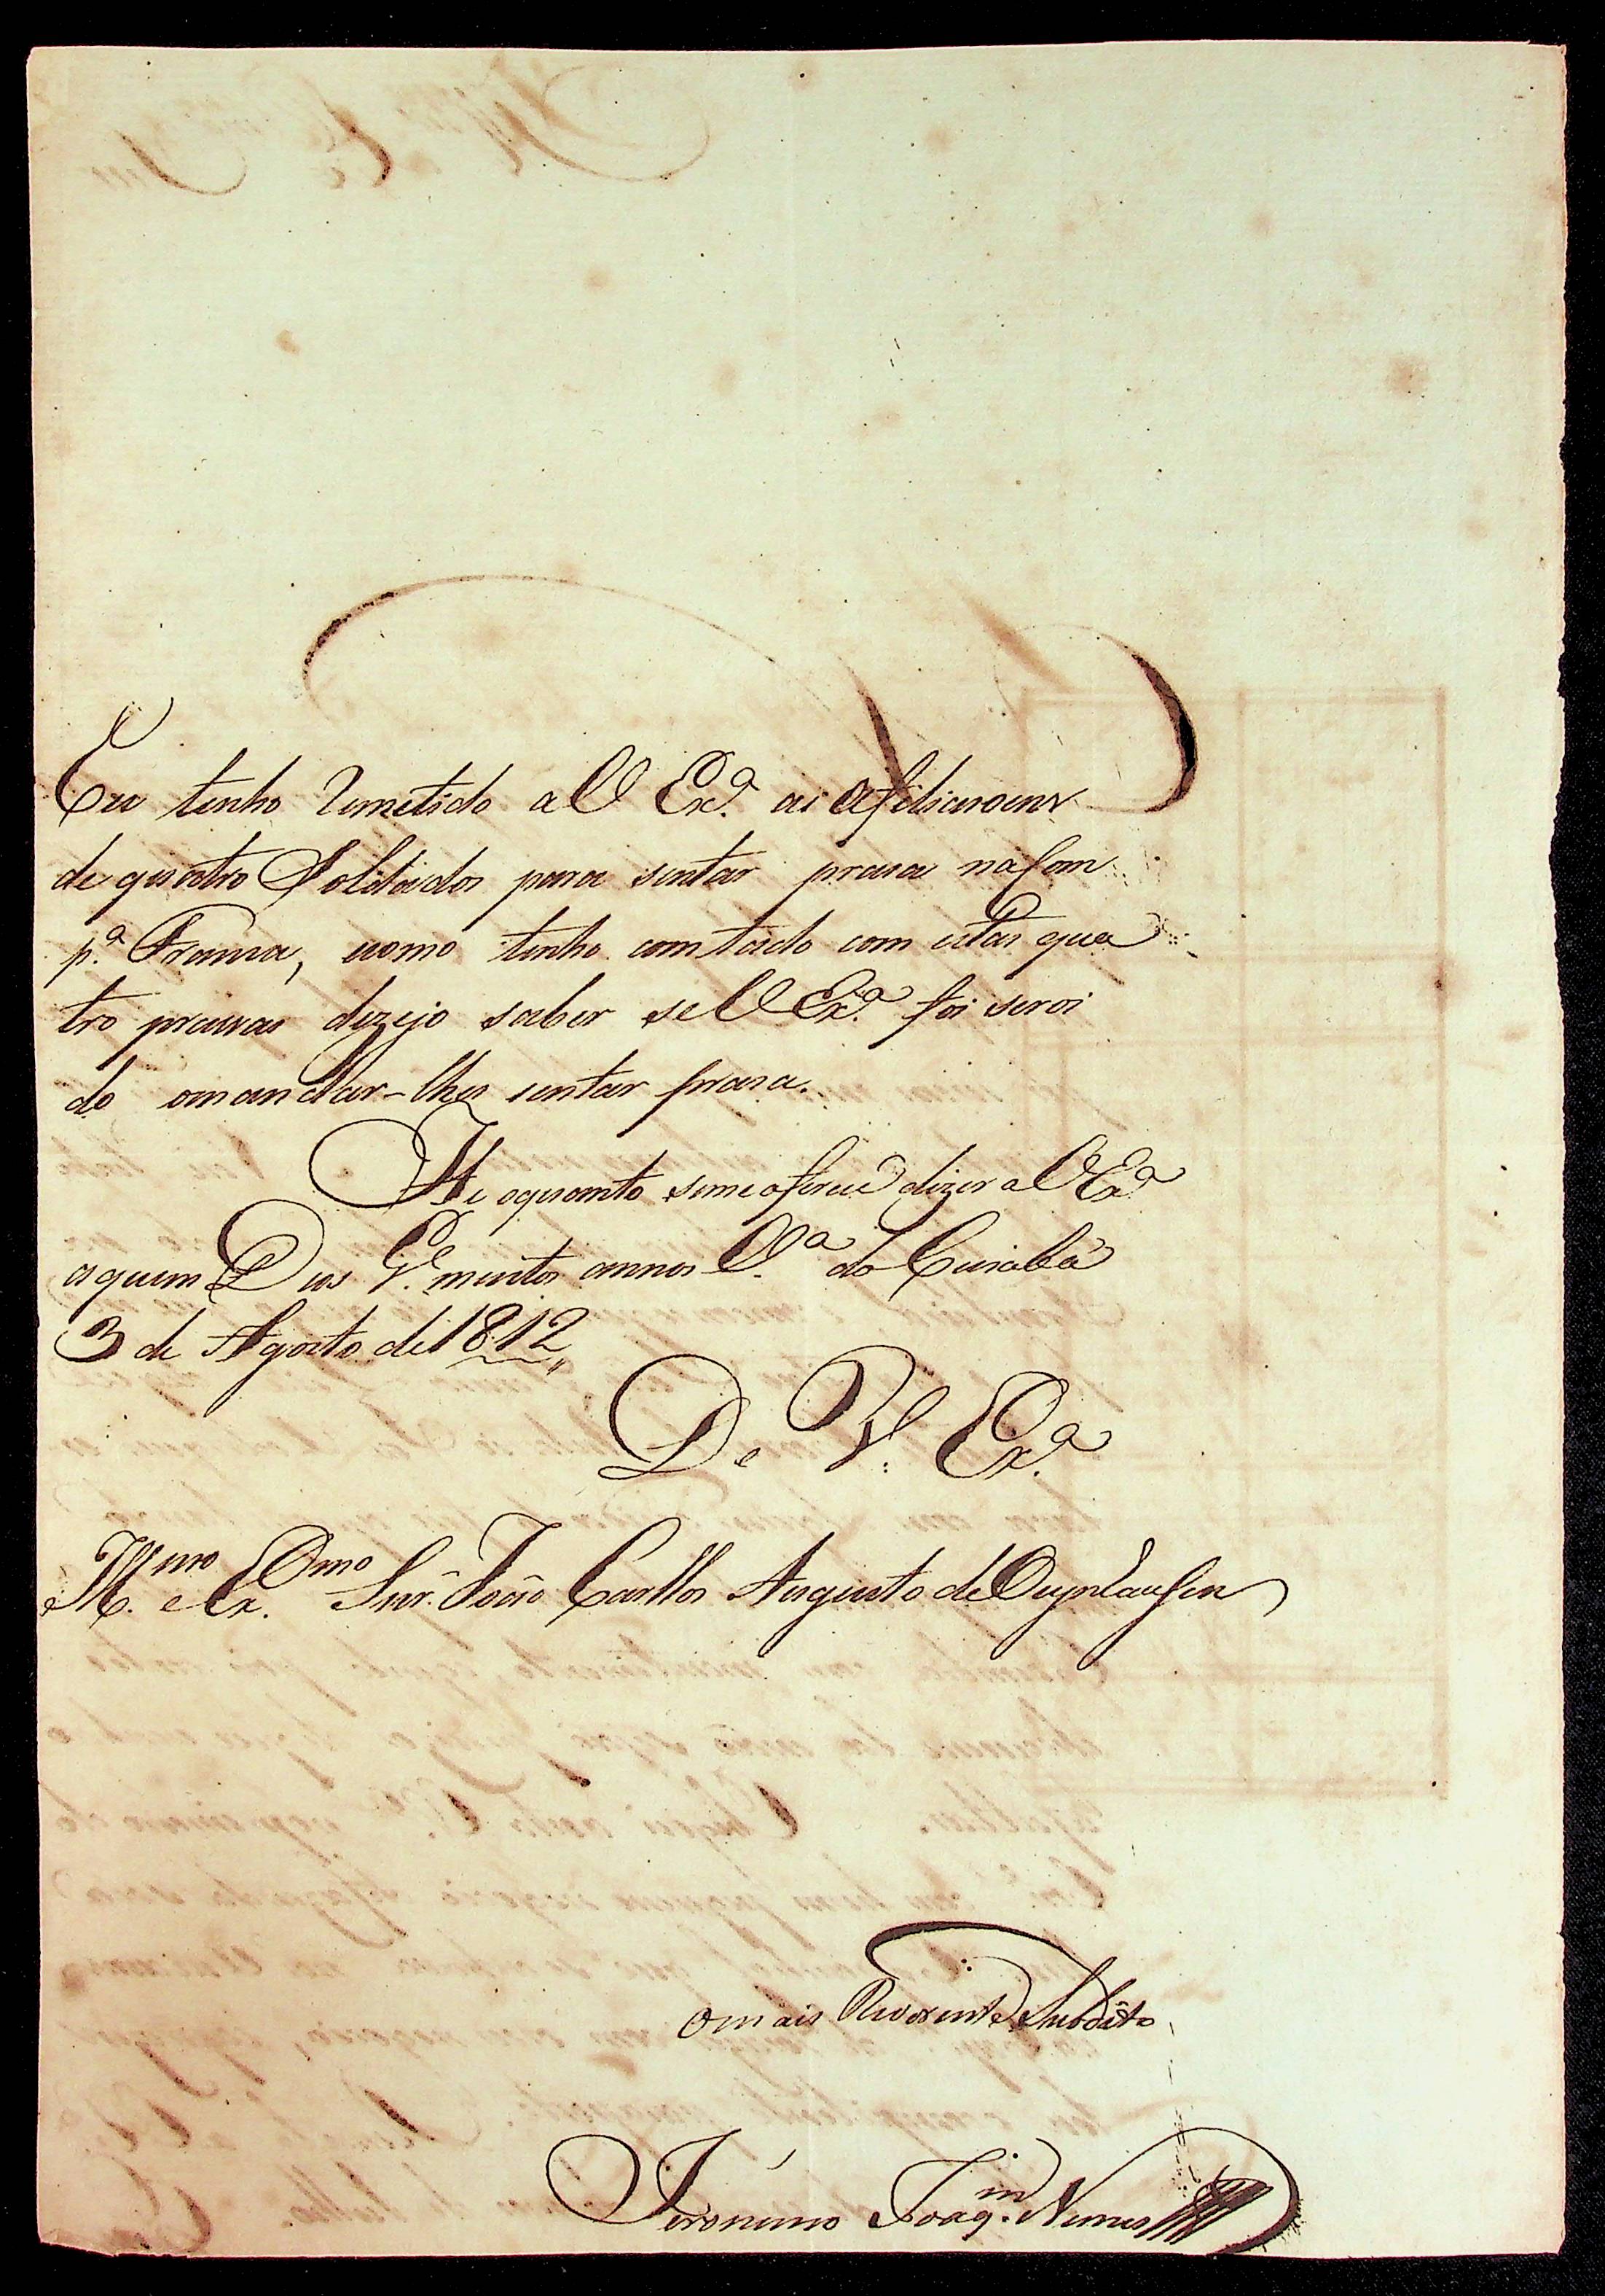 Eu tenho Remetido a V Ex.ª as Afiliasoens
de quatro Solldados para sentar prasa na Com
p.ª Franca, ecomo tenho comtado com estas qua
tro prassas dezejo saber se V Ex.ª foi servi
do omandar-lhes sentar prasa.
He oquanto se me oferece dizer a V Ex.ª
aquem Deos G.e muitos annos V.ª do Cuiabá
3 de Agosto de 1812
De V. Ex.ª
Ill.mo e Ex.mo Snr. João Carllos Augusto de Oeynhausen
omais Reverente Subdito
Jeronimo Joaq.m Nunes